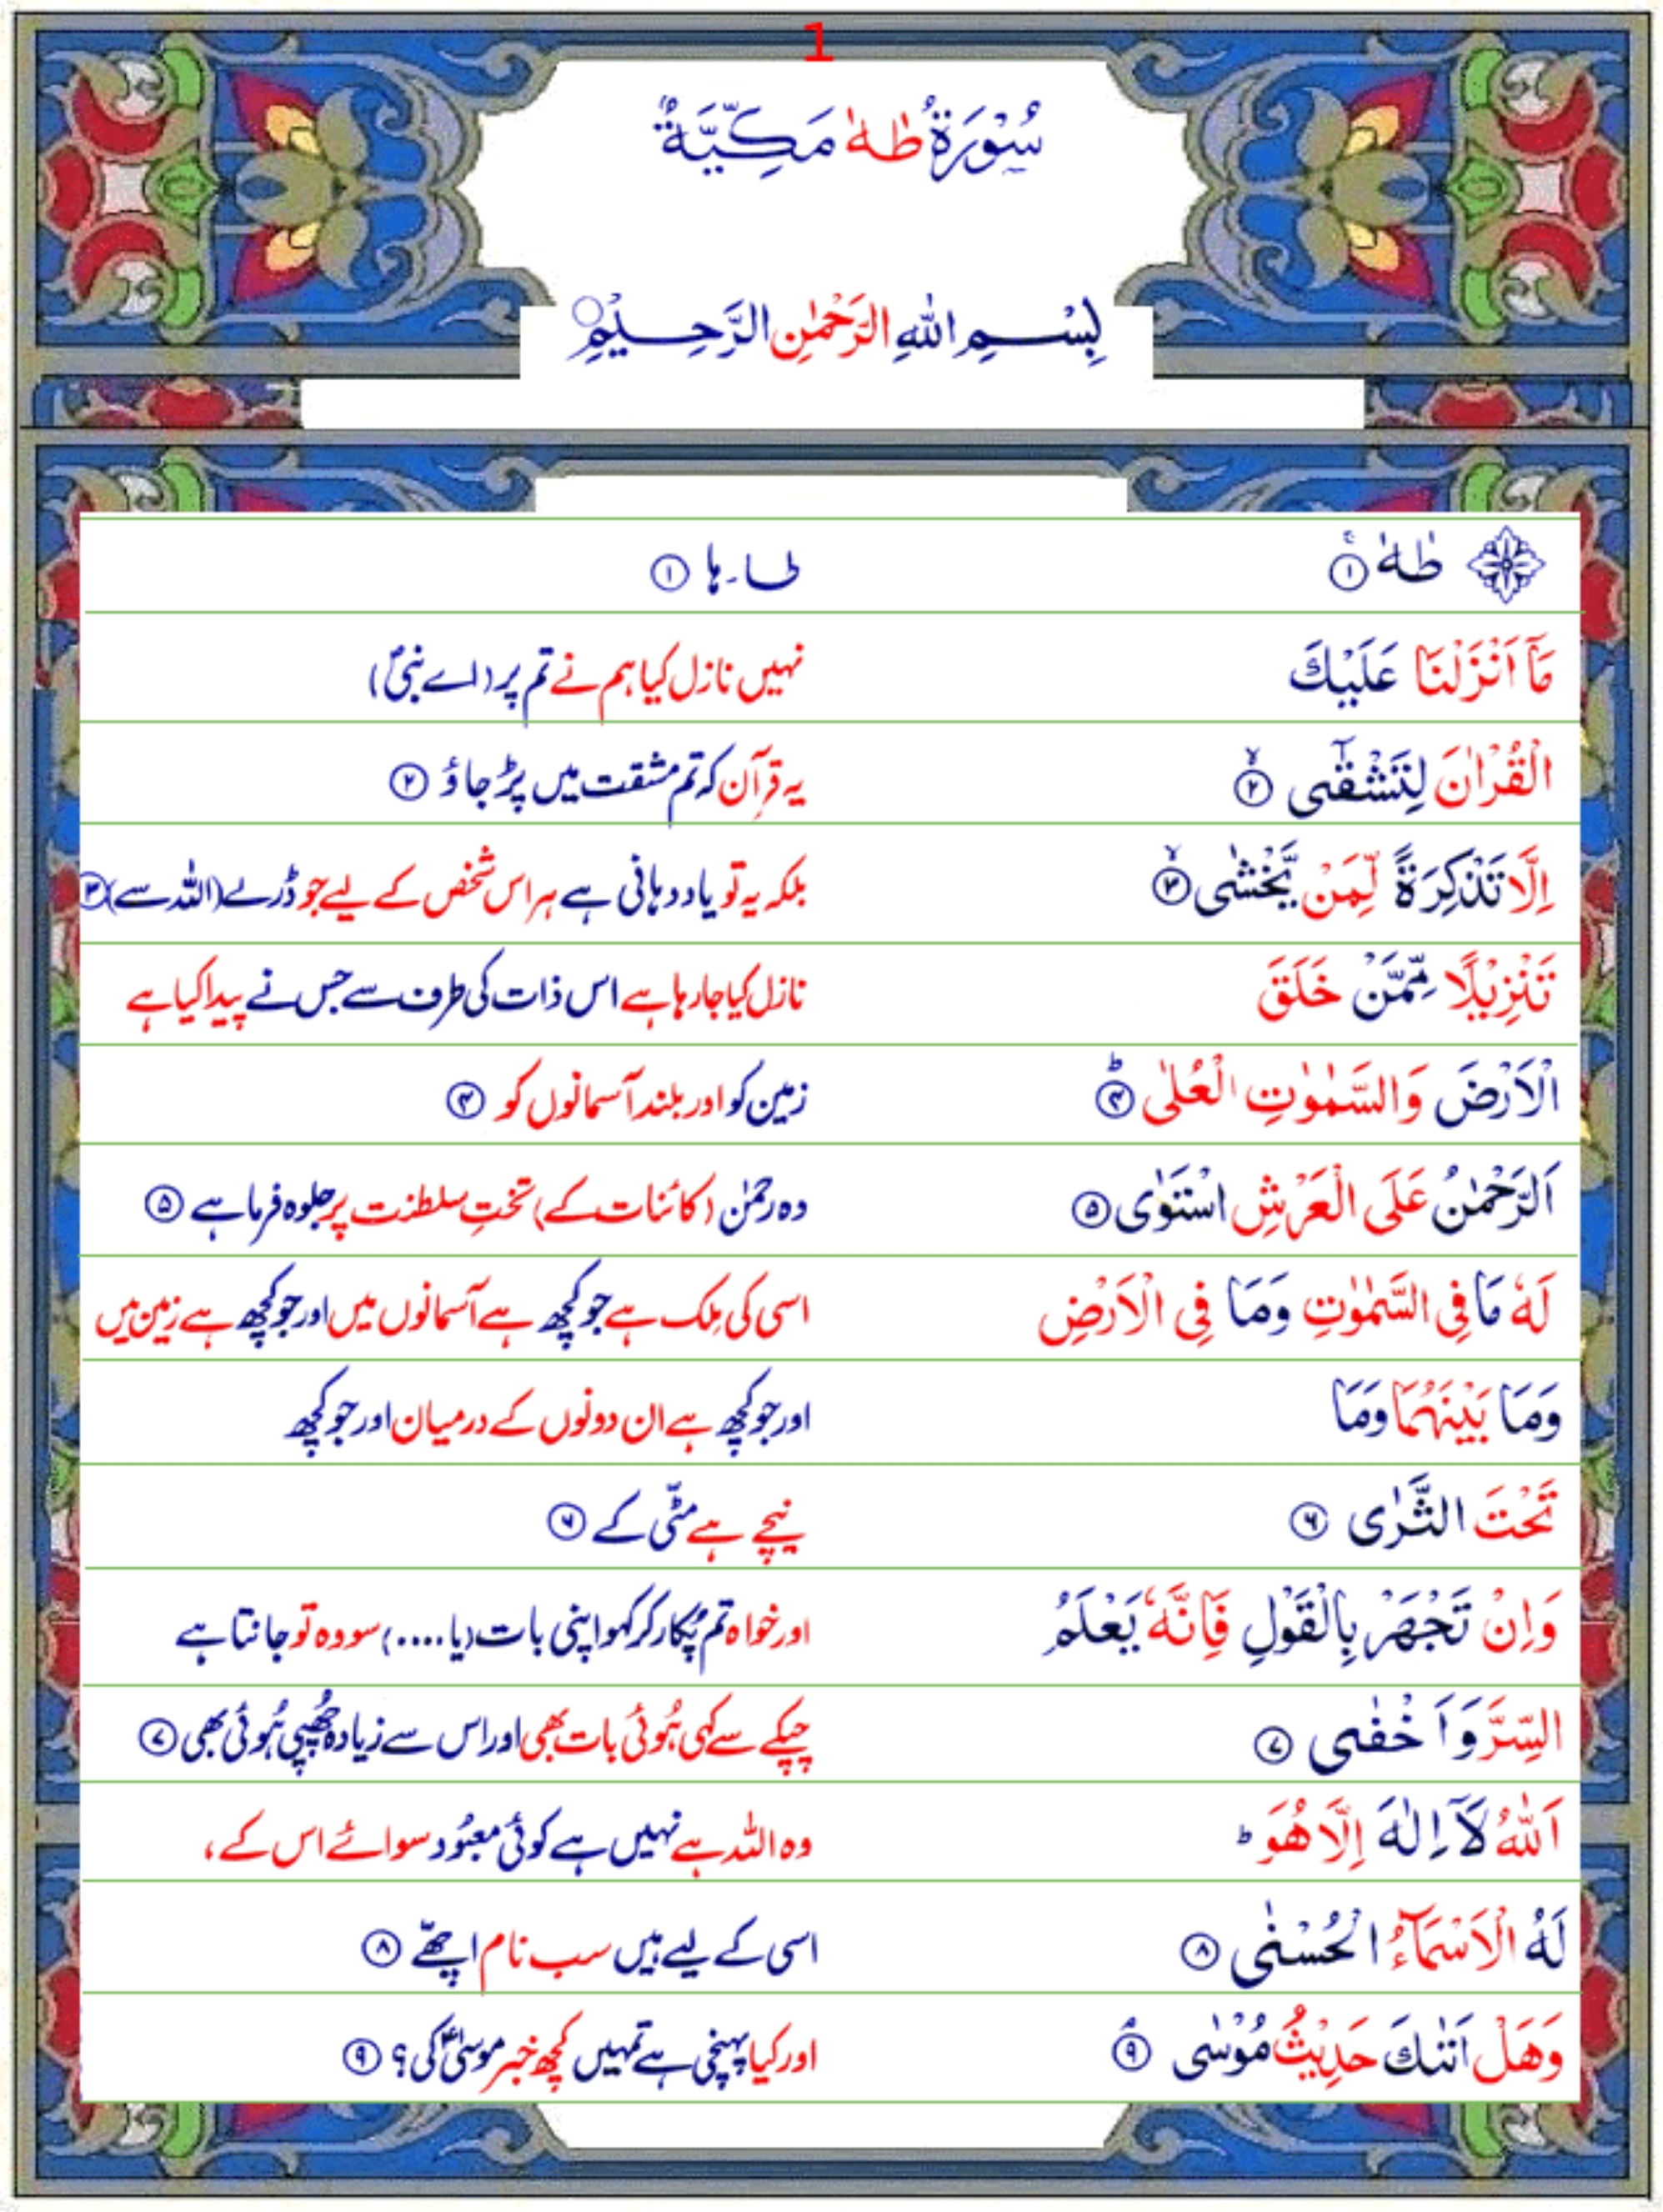 1
سُوْرَةُ طٰهٰ مَكِّيَّةٌ
بِسْمِ اللّٰهِ الرَّحْمٰنِ الرَّحِيْمِ
طٰهٰ ۚ ۝۱ طا۔ ہا ۝۱
مَآ اَنْزَلْنَا عَلَيْكَ نہیں نازل کیا ہم نے تم پر (اے نبیؐ)
الْقُرْاٰنَ لِتَشْقٰٓى ۙ ۝۲ یہ قرآن کہ تم مشقت میں پڑ جاؤ ۝۲
اِلَّا تَذْكِرَةً لِّمَنْ يَّخْشٰى ۙ ۝۳ بلکہ یہ تو یاد دہانی ہے ہر اس شخص کے لیے جو ڈرے (اللہ سے) ۝۳
تَنْزِيْلًا مِّمَّنْ خَلَقَ نازل کیا جا رہا ہے اس ذات کی طرف سے جس نے پیدا کیا ہے
الْاَرْضَ وَالسَّمٰوٰتِ الْعُلٰى ؕ ۝۴ زمین کو اور بلند آسمانوں کو ۝۴
اَلرَّحْمٰنُ عَلَى الْعَرْشِ اسْتَوٰى ۝۵ وہ رحمٰن (کائنات کے) تختِ سلطنت پر جلوہ فرما ہے ۝۵
لَهٗ مَا فِى السَّمٰوٰتِ وَمَا فِى الْاَرْضِ اسی کی مِلک ہے جو کچھ ہے آسمانوں میں اور جو کچھ ہے زمین میں
وَمَا بَيْنَهُمَا وَمَا اور جو کچھ ہے ان دونوں کے درمیان اور جو کچھ
تَحْتَ الثَّرٰى ۝۶ نیچے ہے مٹّی کے ۝۶
وَاِنْ تَجْهَرْ بِالْقَوْلِ فَاِنَّهٗ يَعْلَمُ اور خواہ تم پُکار کر کہو اپنی بات (یا....) سو وہ تو جانتا ہے
السِّرَّ وَاَخْفٰى ۝۷ چپکے سے کہی ہُوئی بات بھی اور اس سے زیادہ چھُپی ہُوئی بھی ۝۷
اَللّٰهُ لَآ اِلٰهَ اِلَّا هُوَ ؕ وہ اللہ ہے نہیں ہے کوئی معبُود سوائے اس کے،
لَهُ الْاَسْمَآءُ الْحُسْنٰى ۝۸ اسی کے لیے ہیں سب نام اچھّے ۝۸
وَهَلْ اَتٰىكَ حَدِيْثُ مُوْسٰى ۘ ۝۹ اور کیا پہنچی ہے تمہیں کچھ خبر موسیٰؑ کی؟ ۝۹